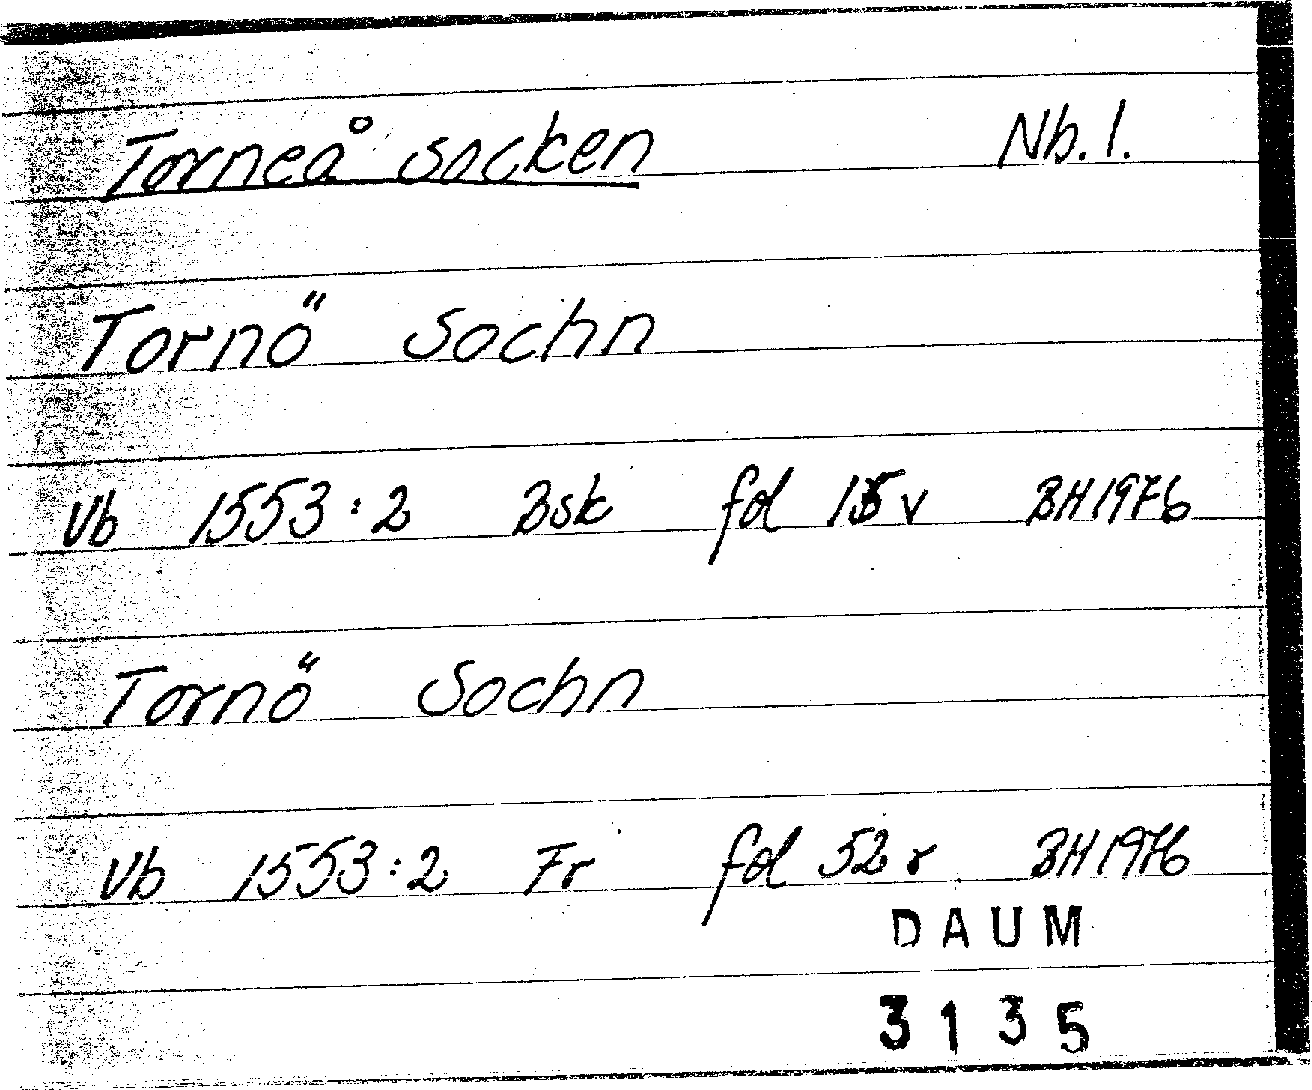 Torneå socken Nb. l.
Tornö Sochn
Vb 1553:2 Bsk fol 15 v BH 1976
Tornö Sochn
Vb 1553:2 Fr fol 52 r BH 1976
DAUM
3135